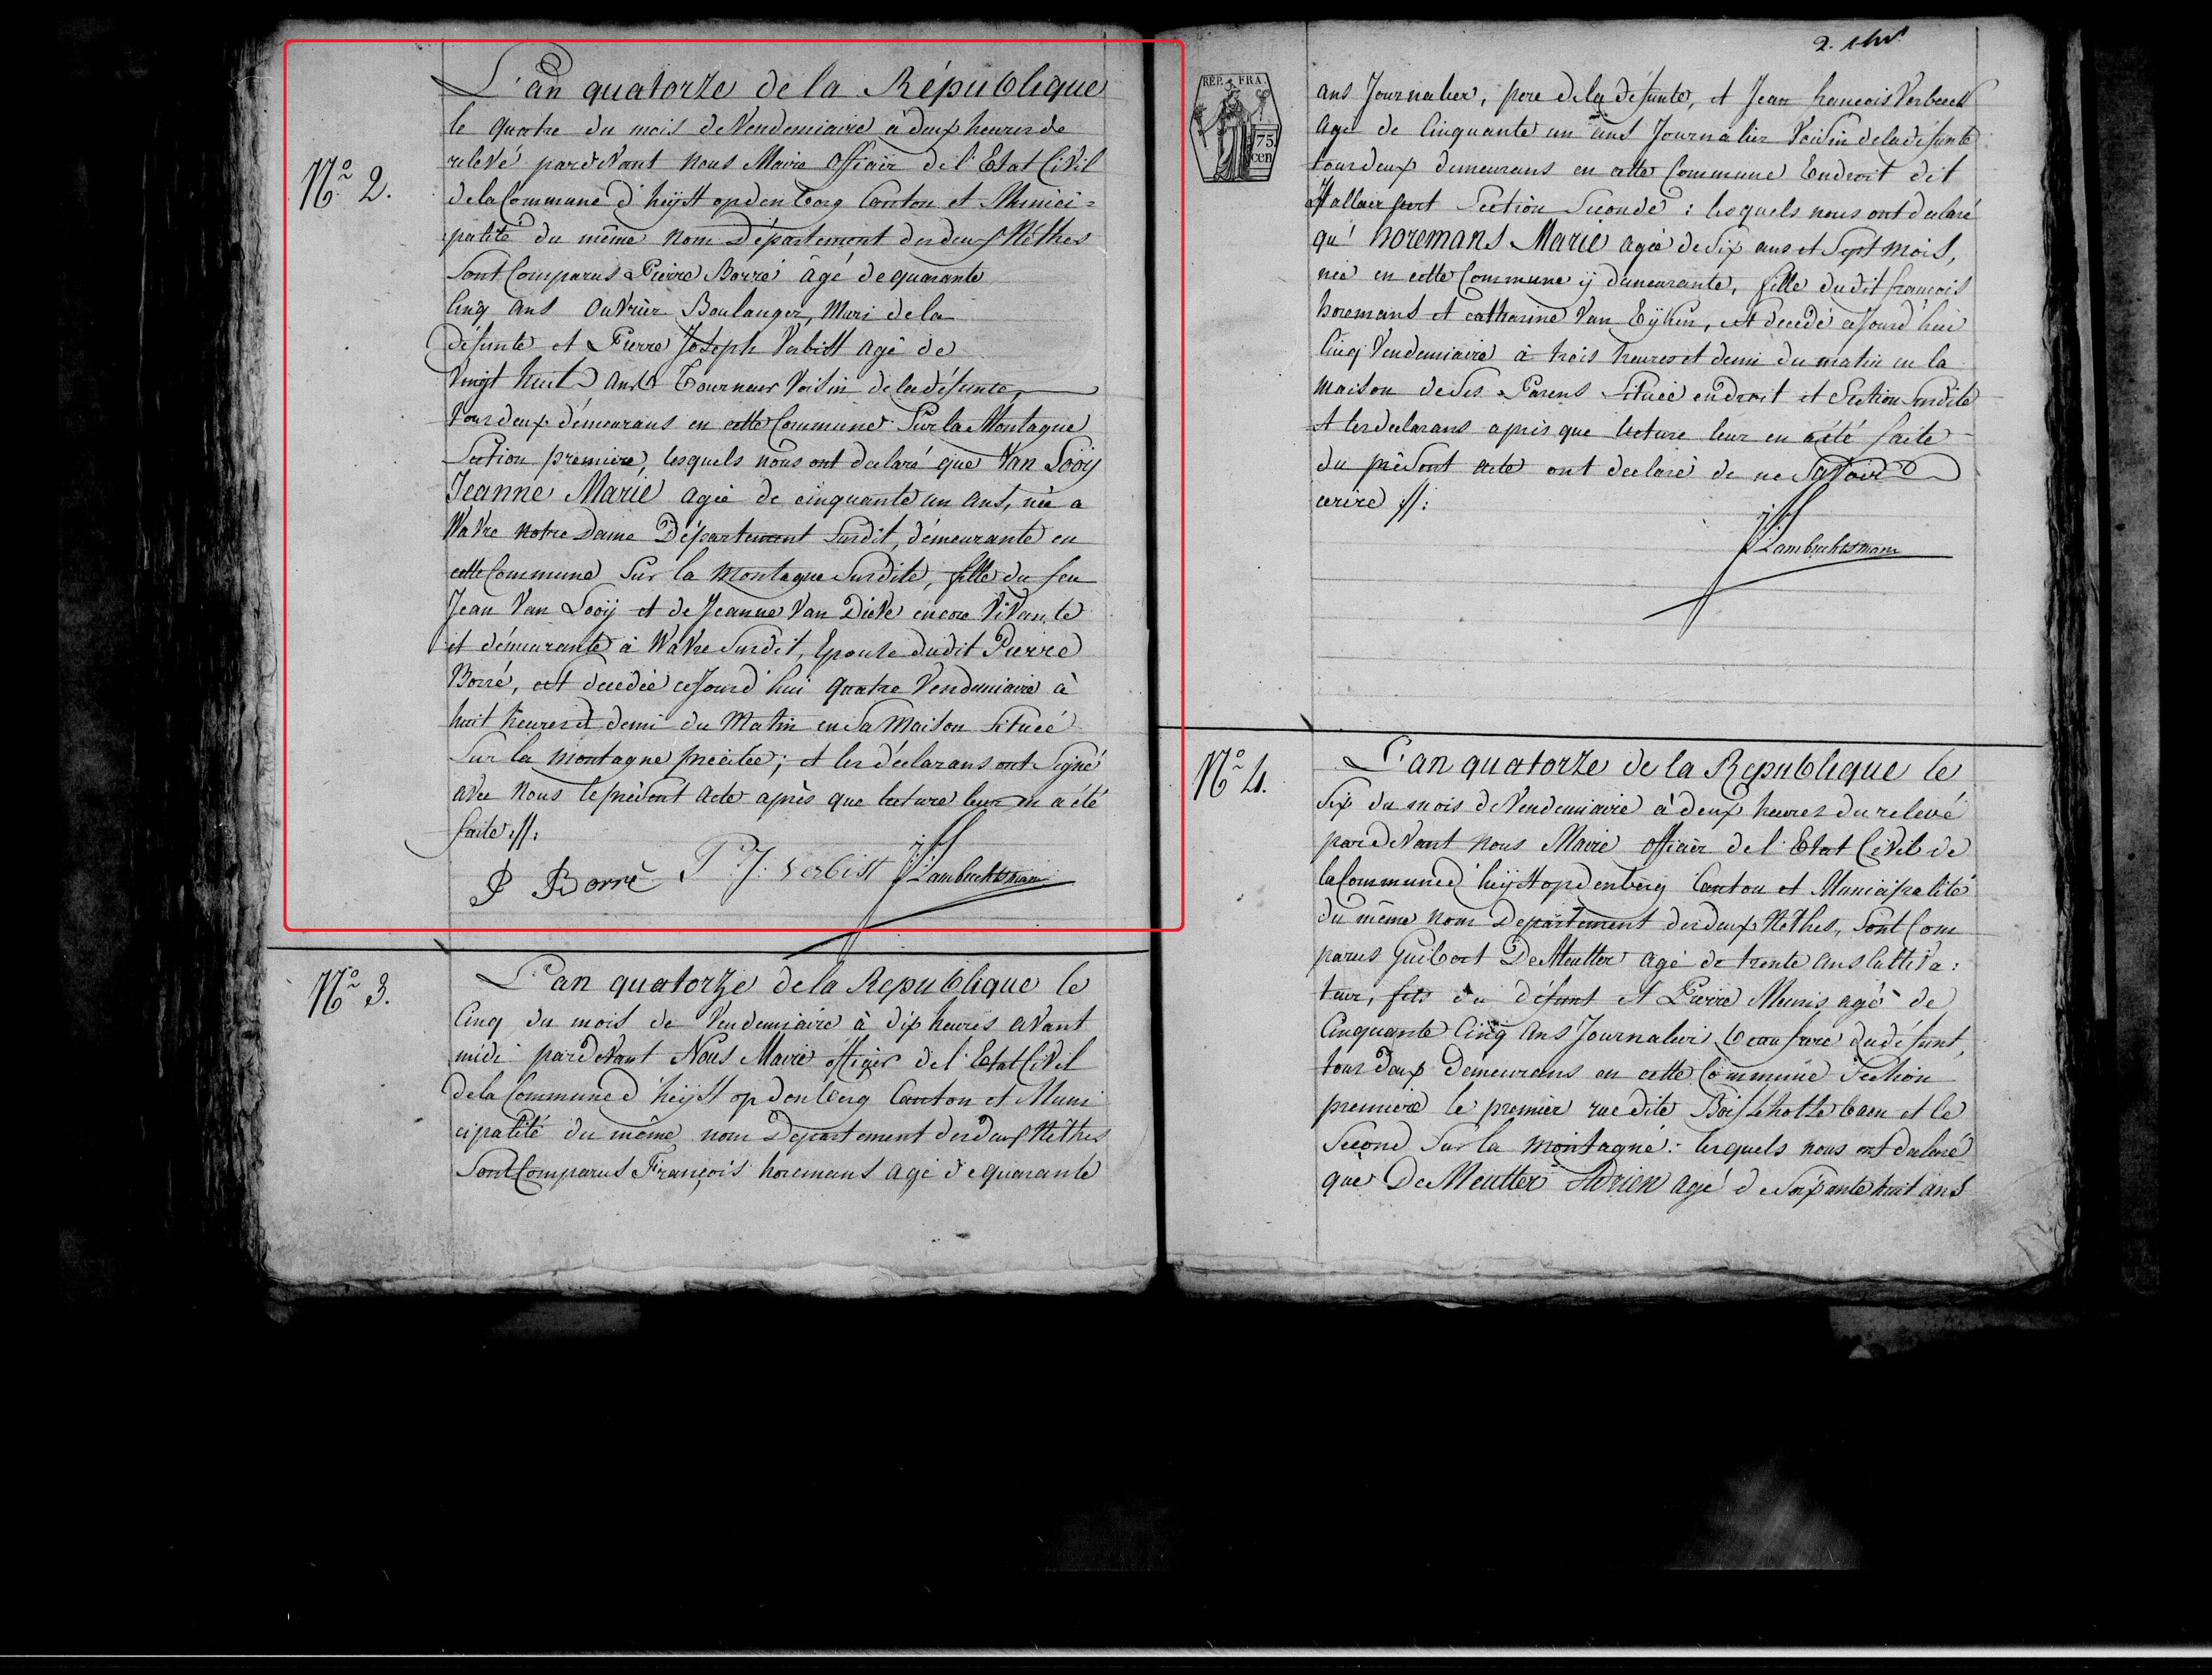 L'an quatorze de la République
le quatre du mois de Vendemiaire à deux heures de
relevé pardevant nous Maire Officier de l'Etat Civil
de la Commune d'heijst op den berg Canton et Munici=
palité du même nom Département des deux Nèthes
Sont Comparus Pierre Borré âgé de quarante
Cinq ans Ouvrier Boulanger, Mari de la
défunte et Pierre Joseph Verbist agé de
Vingt huit ans Tourneur Voisin de la défunte,
tous deux démeurans en cette Commune Sur la Montagne
Section première, lesquels nous ont declaré que Van Looÿ
Jeanne Marie agée de cinquante un ans, née a
WaVre notre Dame Département Susdit, démeurante en
cette Commune Sur la Montagne Susdite, fille du feu
Jean Van Looÿ et de Jeanne Van DieVe encore ViVante
et démeurante à WaVre Susdit, Epouse dudit Pierre
Borré, est decedée cejourd'hui quatre Vendemiaire à
huit heures et demi du Matin en Sa Maison Située
Sur la montagne précitée; et les déclarans ont Signé
avec Nous le présent acte après que lecture leur en a été
faite //:
N° 2.
P Borré P. J. verbist Lambrechtsmans
N° 3.
L'an quatorze de la Republique le
Cinq du mois de Vendemiaire à dix heures aVant
midi pardevant Nous Maire officier de l'Etat CiVil
de la Commune d'heijst op den berg Canton et Muni
cipalité du même nom Departement des deux Nethes
Sont Comparus François horemans agé de quarante
2.
REP. FRA.
75
cen
ans Journalier, pere de la défunte, et Jean francois Verbeeck
agé de Cinquante un ans Journalier Voisin de la défunte
tous deux demeurans en cette Commune Endroit dit
Section Seconde: lesquels nous ont declaré
qu' horemans Marie agée de Six ans et Sept mois,
née en cette Commune ÿ demeurante, fille dudit francois
horemans et catharine Van Eÿken, est decedé cejourd'hui
Cinq Vendemiaire à trois heures et demi du matin en la
maison de Ses Parens Située endroit et Section Susdite
et les declarans après que lecture leur en a été faite
du présent acte ont declaré de ne Savoir
ecrire //:
Lambrechtsmans
N° 4.
L'an quatorze de la Republique le
Six du mois de Vendemiaire à deux heures du relevé
pardeVant nous Maire officier de l'Etat CiVil de
la Commune d'heijst op den berg Canton et Municipalité
du même nom Departement des deux Nèthes, Sont Com
parus Guibert De Meutter agé de trente ans CultiVa:
teur, fils du défunt et Pierre Meuris agé de
Cinquante Cinq ans Journalier beaufrere du défunt,
tous deux demeurans en cette Commune Section
première le premier rue dite baen et le
Second Sur la montagne: lesquels nous ont declaré
que De Meutter Adrien agé de Soixante huit ans